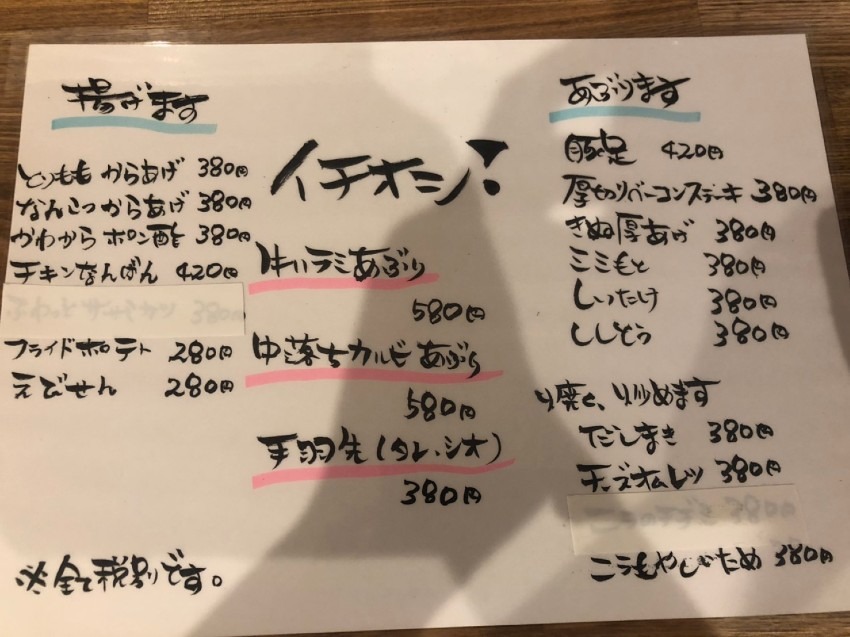 揚げます
とりもも からあげ 380円
なんこつからあげ 380円
かわから ポン酢 380円
チキンなんばん 420円
フライドポテト 280円
えびせん 280円
※全て税別です。
イチオシ!
牛ハラミあぶり
580円
中落ちカルビ あぶり
580円
手羽先(タレ、シオ)
380円
あぶります
豚足 420円
厚切りベーコンステーキ 380円
きぬ厚あげ 380円
ミミもと 380円
しいたけ 380円
ししとう 380円
焼く、炒めます
だしまき 380円
チーズオムレツ 380円
ニラもやしいため 380円